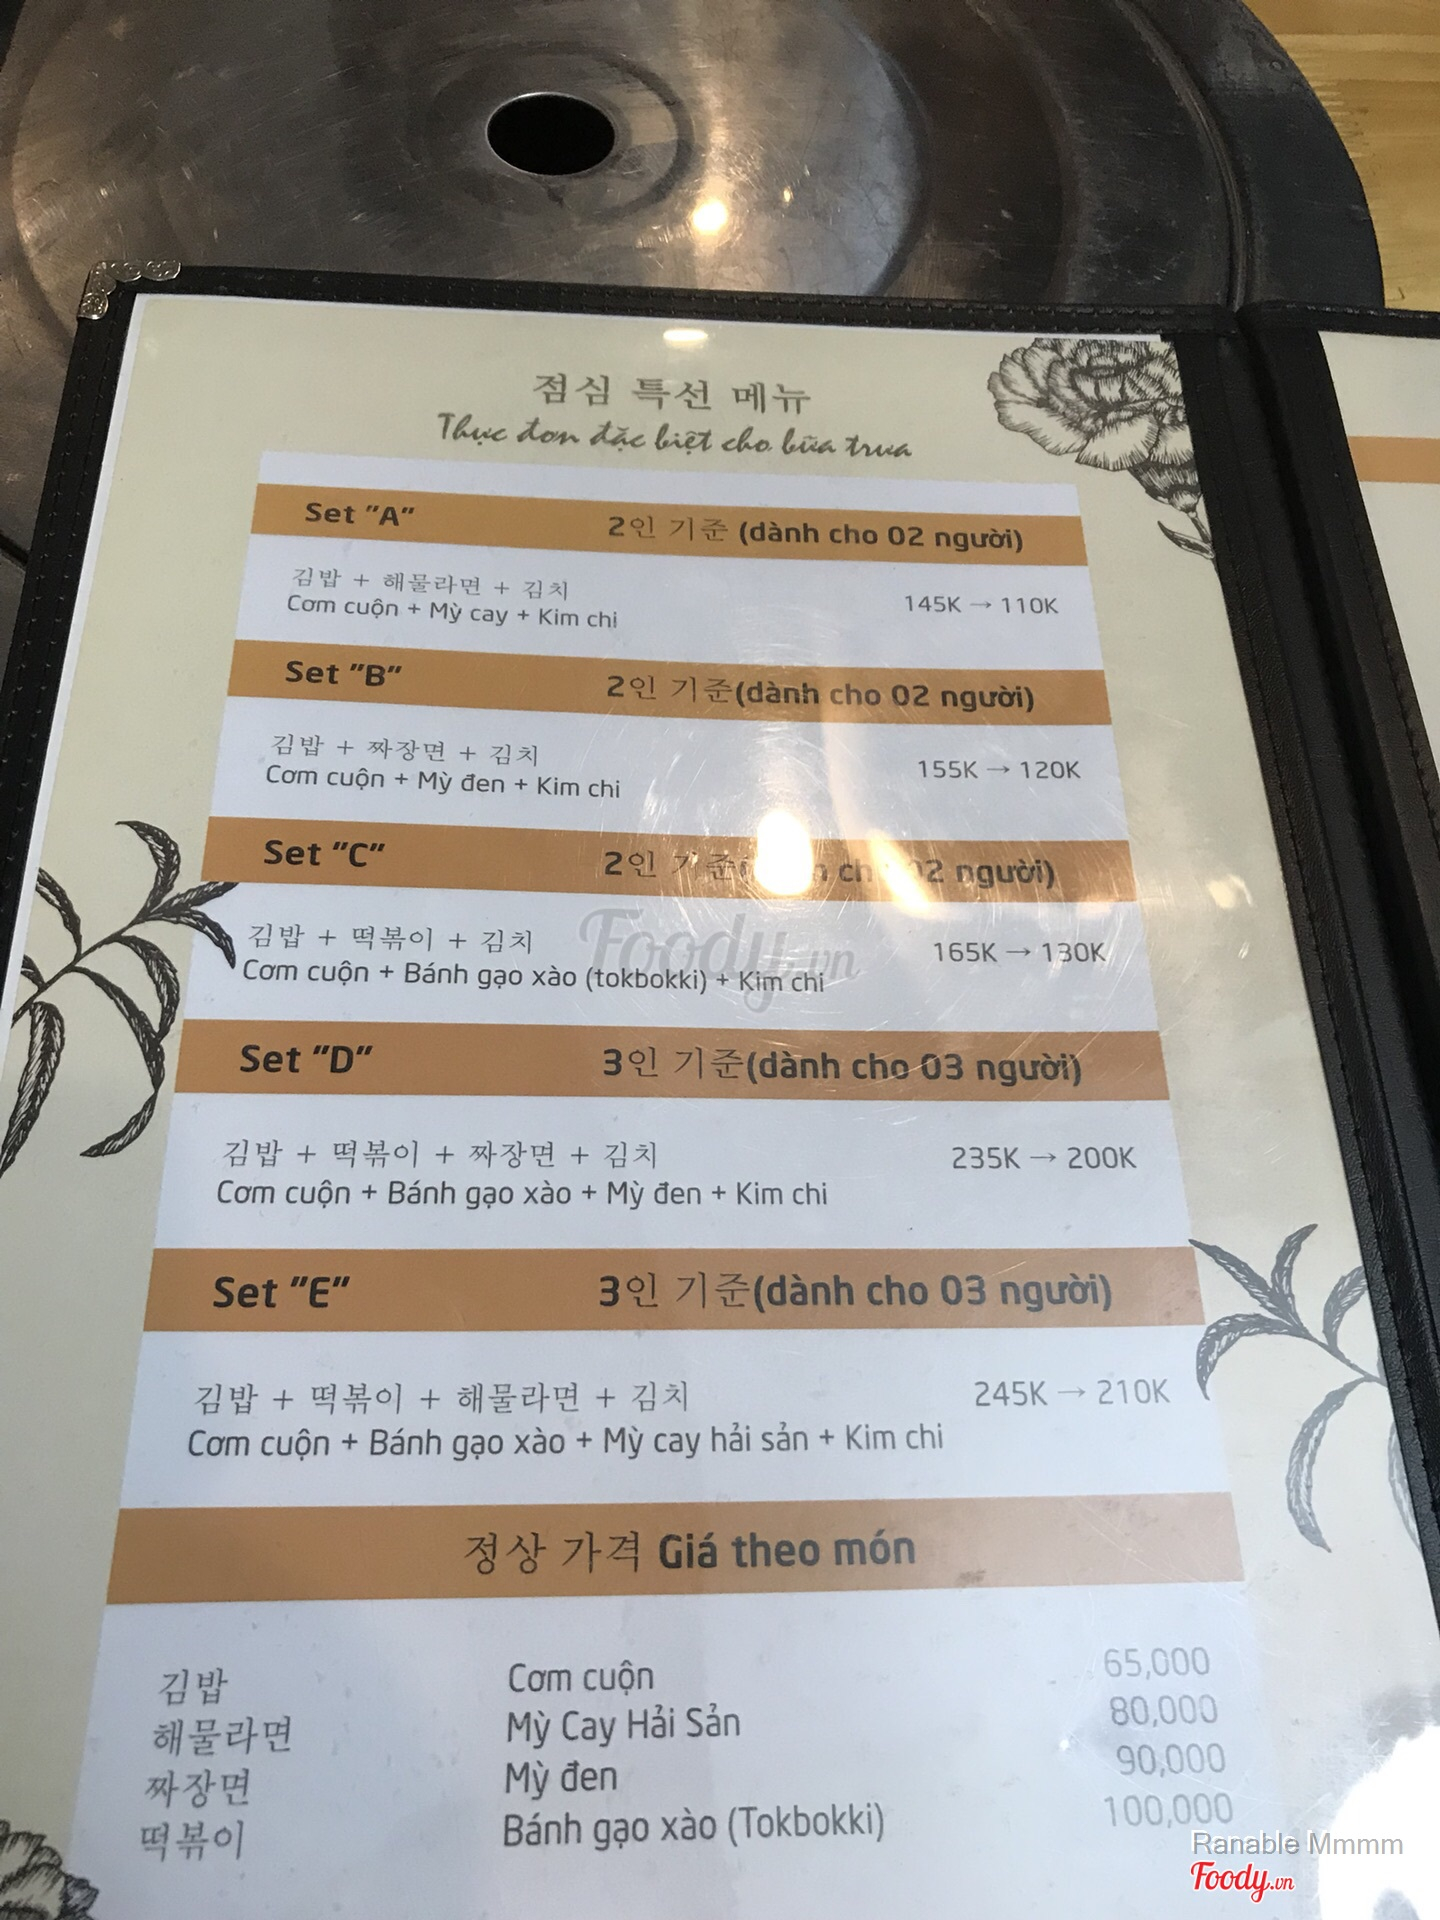 점심 특선 메뉴
Thực đơn đặc biệt cho bữa trưa
Set "A" 2인 기준 (dành cho 02 người)
김밥 + 해물라면 + 김치
Cơm cuộn + Mỳ cay + Kim chi 145K → 110K
Set "B" 2인 기준(dành cho 02 người)
김밥 + 짜장면 + 김치
Cơm cuộn + Mỳ đen + Kim chi 155K → 120K
Set "C" 2인 기준 cho 02 người)
김밥 + 떡볶이 + 김치
Cơm cuộn + Bánh gạo xào (tokbokki) + Kim chi 165K → 130K
Foody.vn
Set "D" 3인 기준(dành cho 03 người)
김밥 + 떡볶이 + 짜장면 + 김치 235K → 200K
Cơm cuộn + Bánh gạo xào + Mỳ đen + Kim chi
Set "E" 3인 기준(dành cho 03 người)
김밥 + 떡볶이 + 해물라면 + 김치 245K → 210K
Cơm cuộn + Bánh gạo xào + Mỳ cay hải sản + Kim chi
정상 가격 Giá theo món
김밥 Cơm cuộn 65,000
해물라면 Mỳ Cay Hải Sản 80,000
짜장면 Mỳ đen 90,000
떡볶이 Bánh gạo xào (Tokbokki) 100,000
Ranable Mmmm
Foody.vn